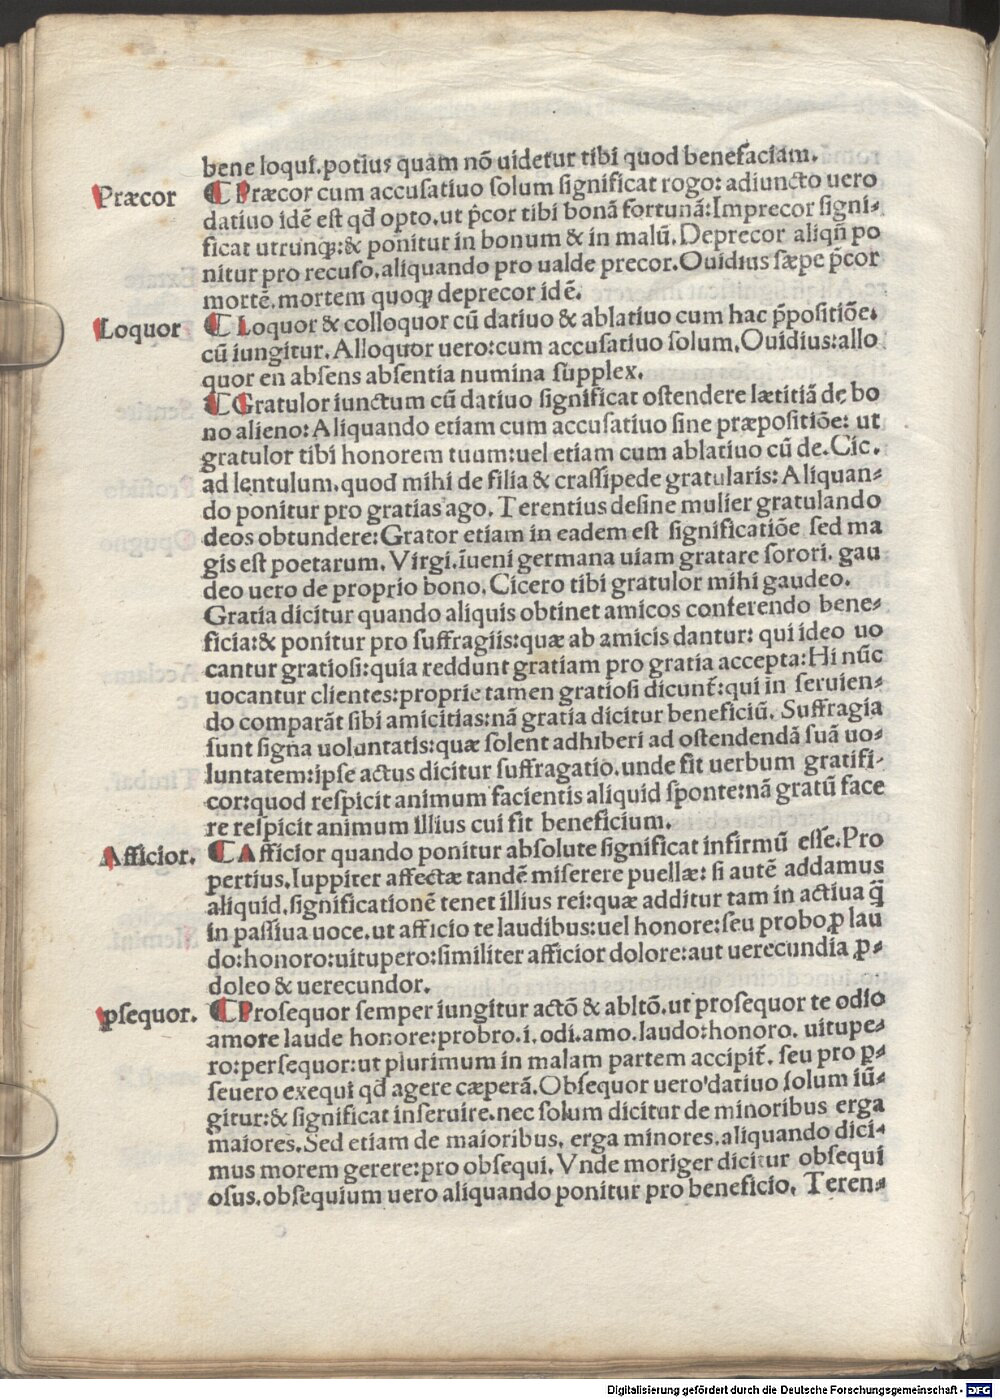 bene loqui.potius quam nõ uidetur tibi quod benefaciam.
Præcor
⸿ Præcor cum accuſatiuo ſolum ſignificat rogo: adiuncto uero
datiuo idẽ eſt qd̃ opto.ut p̃cor tibi bonã fortunã:Imprecor ſigni⸗
ficat utrunqꝫ:& ponitur in bonum & in malũ.Deprecor aliqñ po
nitur pro recuſo.aliquando pro ualde precor.Ouidius ſæpe p̃cor
mortẽ.mortem quoqꝫ deprecor idẽ.
Loquor
⸿ Loquor & colloquor cũ datiuo & ablatiuo cum hac p̃poſitiõe.
cũ iungitur.Alloquor uero:cum accuſatiuo ſolum.Ouidius:allo
quor en abſens abſentia numina ſupplex.
⸿ Gratulor iunctum cũ datiuo ſignificat oſtendere lætitiã de bo
no alieno:Aliquando etiam cum accuſatiuo ſine præpoſitiõe: ut
gratulor tibi honorem tuum:uel etiam cum ablatiuo cũ de.Cic.
ad lentulum.quod mihi de filia & craſſipede gratularis:Aliquan⸗
do ponitur pro gratias ago.Terentius deſine mulier gratulando
deos obtundere:Grator etiam in eadem eſt ſignificatiõe ſed ma
gis eſt poetarum.Virgi.iũeni germana uiam gratare ſorori.gau
deo uero de proprio bono.Cicero tibi gratulor mihi gaudeo.
Gratia dicitur quando aliquis obtinet amicos conferendo bene⸗
ficia:& ponitur pro ſuffragiis:quæ ab amicis dantur: qui ideo uo
cantur gratioſi:quia reddunt gratiam pro gratia accepta:Hi nũc
uocantur clientes:proprie tamen gratioſi dicunt̃:qui in ſeruien⸗
do comparãt ſibi amicitias:nã gratia dicitur beneficiũ. Suffragia
ſunt ſigna uoluntatis:quæ ſolent adhiberi ad oſtendendã ſuã uo⸗
luntatem:ipſe actus dicitur ſuffragatio.unde fit uerbum gratifi⸗
cor:quod reſpicit animum facientis aliquid ſponte:nã gratũ face
re reſpicit animum illius cui fit beneficium.
Afficior.
⸿ Afficior quando ponitur abſolute ſignificat infirmũ eſſe.Pro
pertius.Iuppiter affectæ tandẽ miſerere puellæ: ſi autẽ addamus
aliquid.ſignificationẽ tenet illius rei:quæ additur tam in actiua q̃
in paſſiua uoce.ut afficio te laudibus:uel honore:ſeu probo,ꝓ lau
do:honoro:uitupero:ſimiliter afficior dolore:aut uerecundia ꝓ⸗
doleo & uerecundor.
ꝓſequor.
⸿ Proſequor ſemper iungitur actõ & abltõ.ut proſequor te odio
amore laude honore:probro.i.odi.amo.laudo:honoro. uitupe⸗
ro:perſequor:ut plurimum in malam partem accipit̃. ſeu pro ꝑ⸗
ſeuero exequi qd̃ agere cæperã.Obſequor uero datiuo ſolum iũ⸗
gitur:& ſignificat inſeruire.nec ſolum dicitur de minoribus erga
maiores.Sed etiam de maioribus. erga minores.aliquando dici⸗
mus morem gerere:pro obſequi.Vnde moriger dicitur obſequi
oſus.obſequium uero aliquando ponitur pro beneficio. Teren⸗
Digitalisierung gefördert durch die Deutsche Forschungsgemeinschaft - DFG